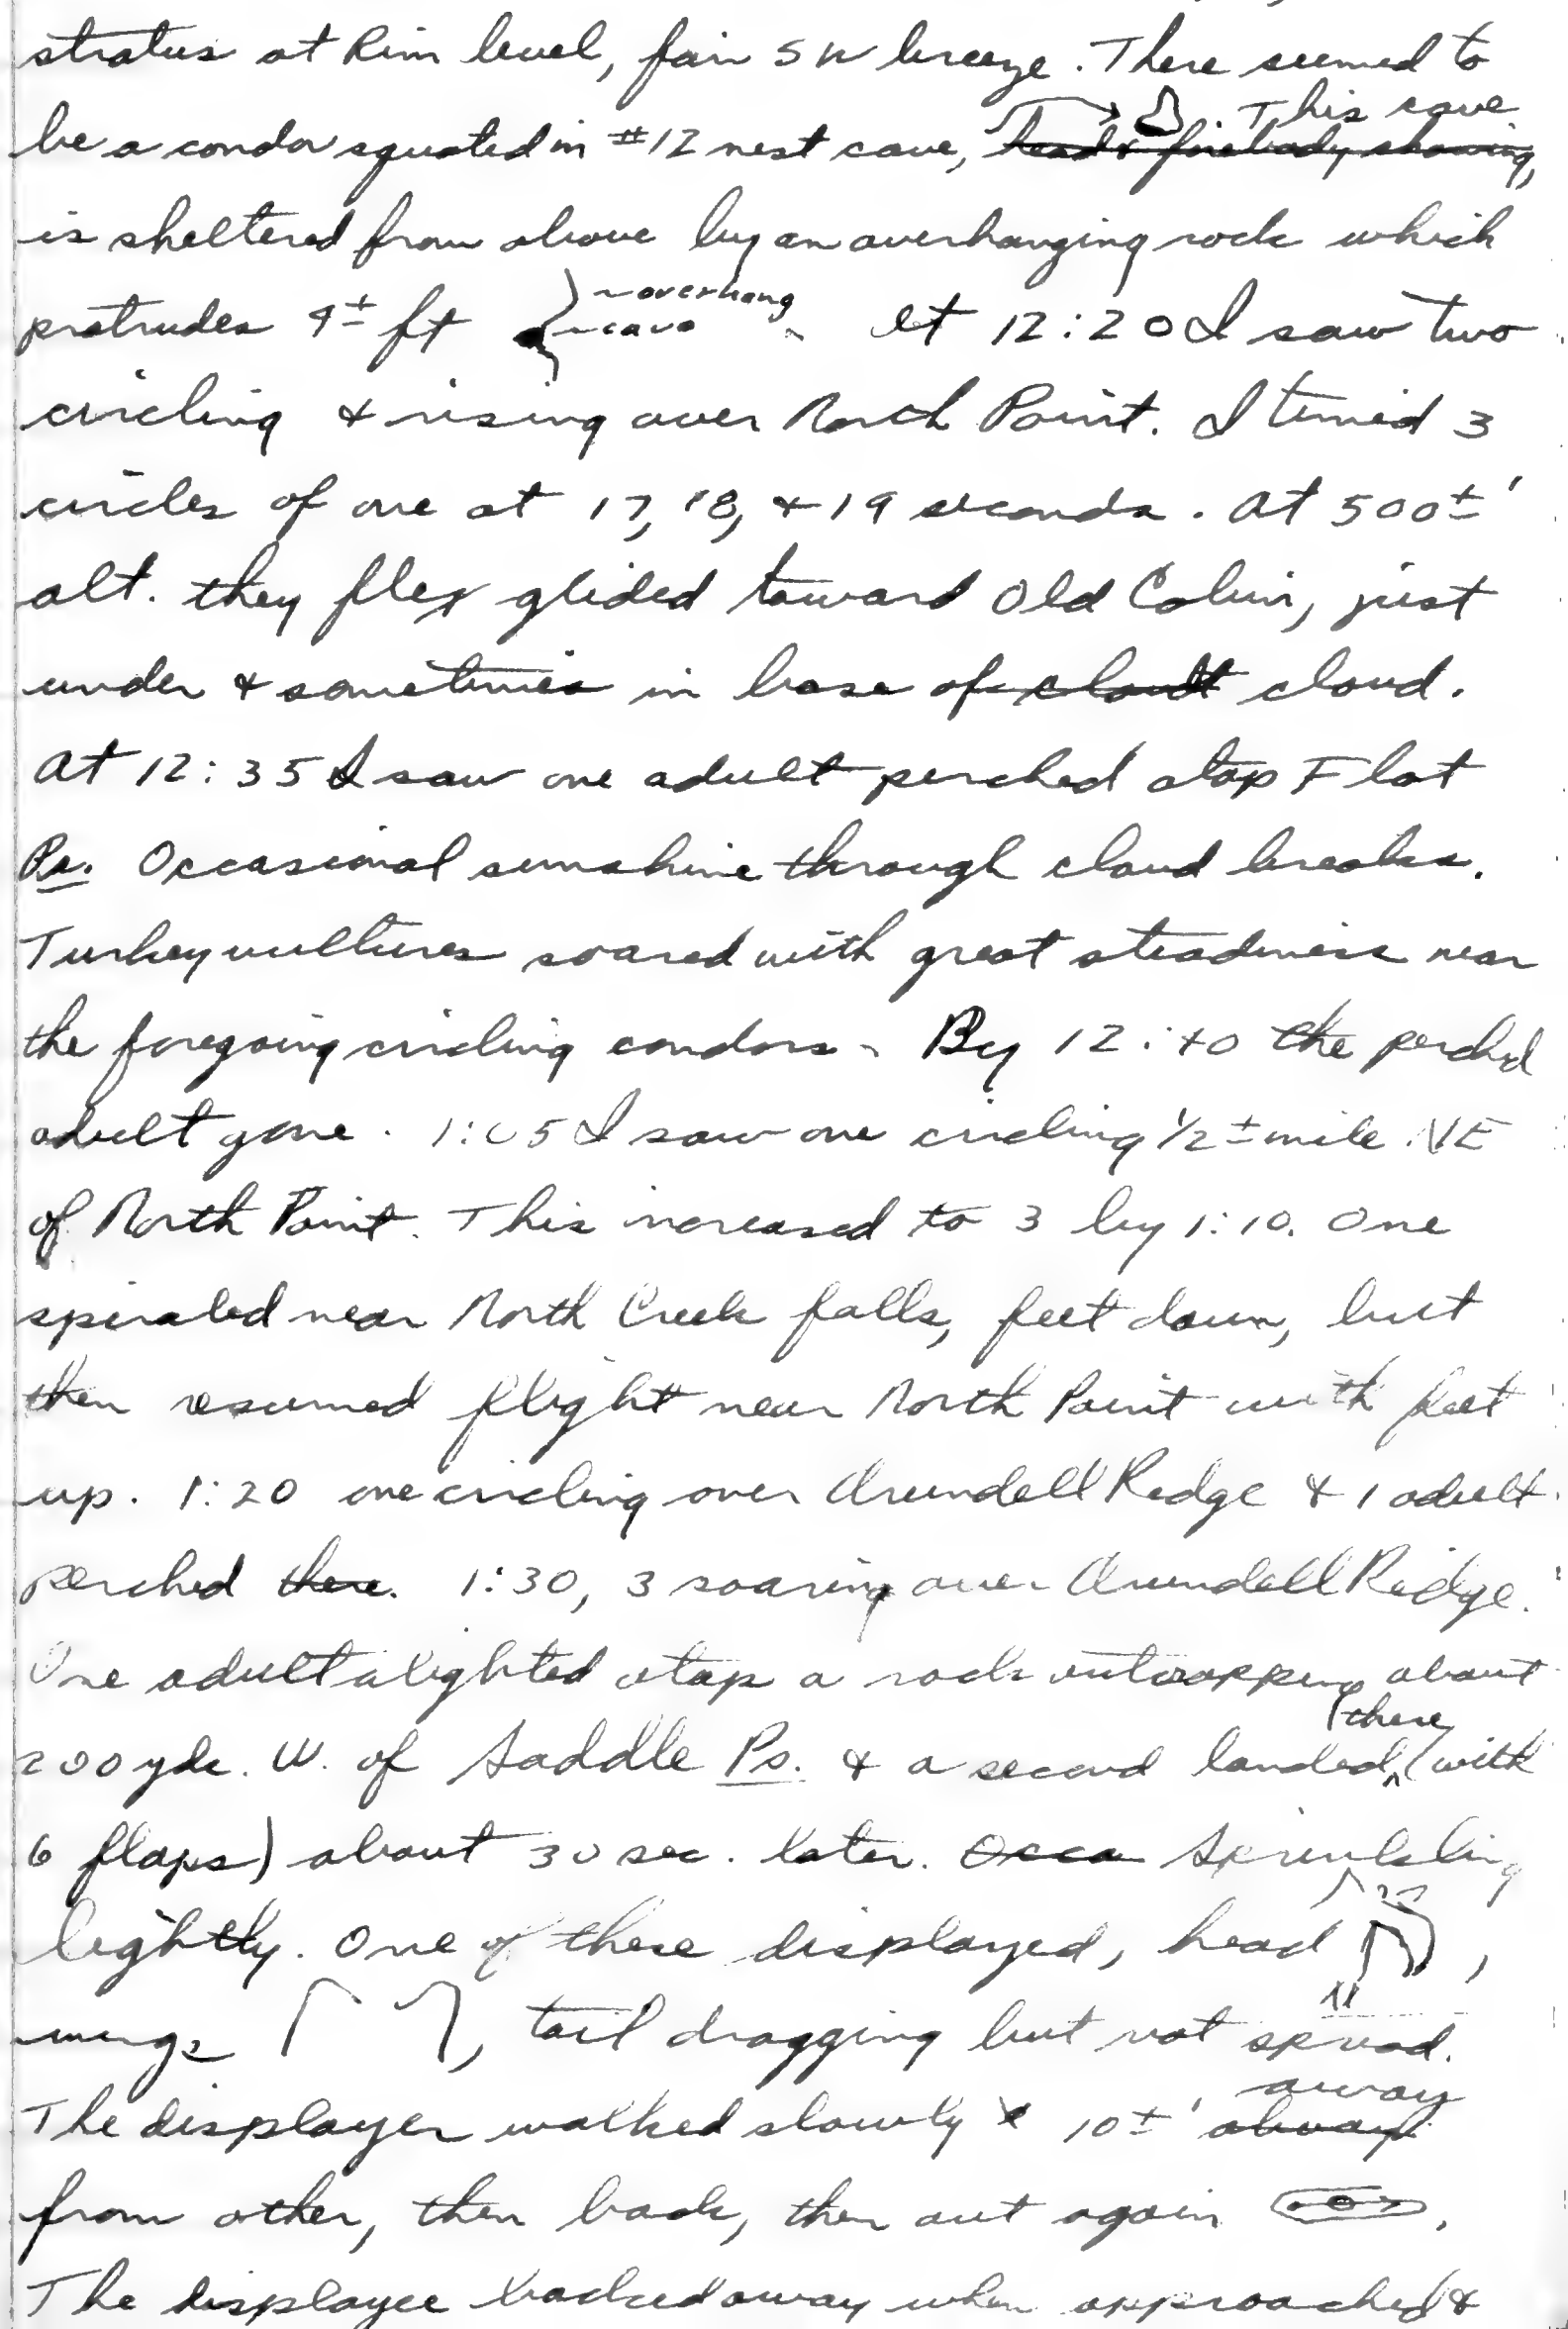 stratus at Rim level, fair SW breeze. There seemed to
be a condor squated in #12 nest cave, head & forebody showing, . This cave
is sheltered from above by an overhanging rock which
protrudes 4± ft ~overhang ~cave. At 12:20 I saw two
circling & rising over North Point. I timed 3
circles of one at 17, 18, & 19 seconds. At 500±'
alt. they flex glided toward Old Colvin, just
under & sometimes in base of cloudt cloud.
At 12:35 I saw one adult perched atop Flat
Ps. Occasional sunshine through cloud breaks.
Turkey vultures soared with great steadiness near
the foregoing circling condors. By 12:40 the perched
adult gone. 1:05 I saw one circling 1/2± mile NE
of North Point. This increased to 3 by 1:10. One
spiraled near North Creek falls, feet down, but
then resumed flight near North Point with feet
up. 1:20 one circling over Arundell Ridge & 1 adult
perched there. 1:30, 3 soaring over Arundell Ridge.
One adult alighted atop a rock outcropping about
200 yds. W. of Saddle Ps. & a second landed there (with
6 flaps) about 30 sec. later. Occa Sprinkling
lightly. One of these displayed, head ,
wings , tail dragging but not spread.
The displayer walked slowly 10±' away
from other, then back, then out again .
The displayee backed away when approached &